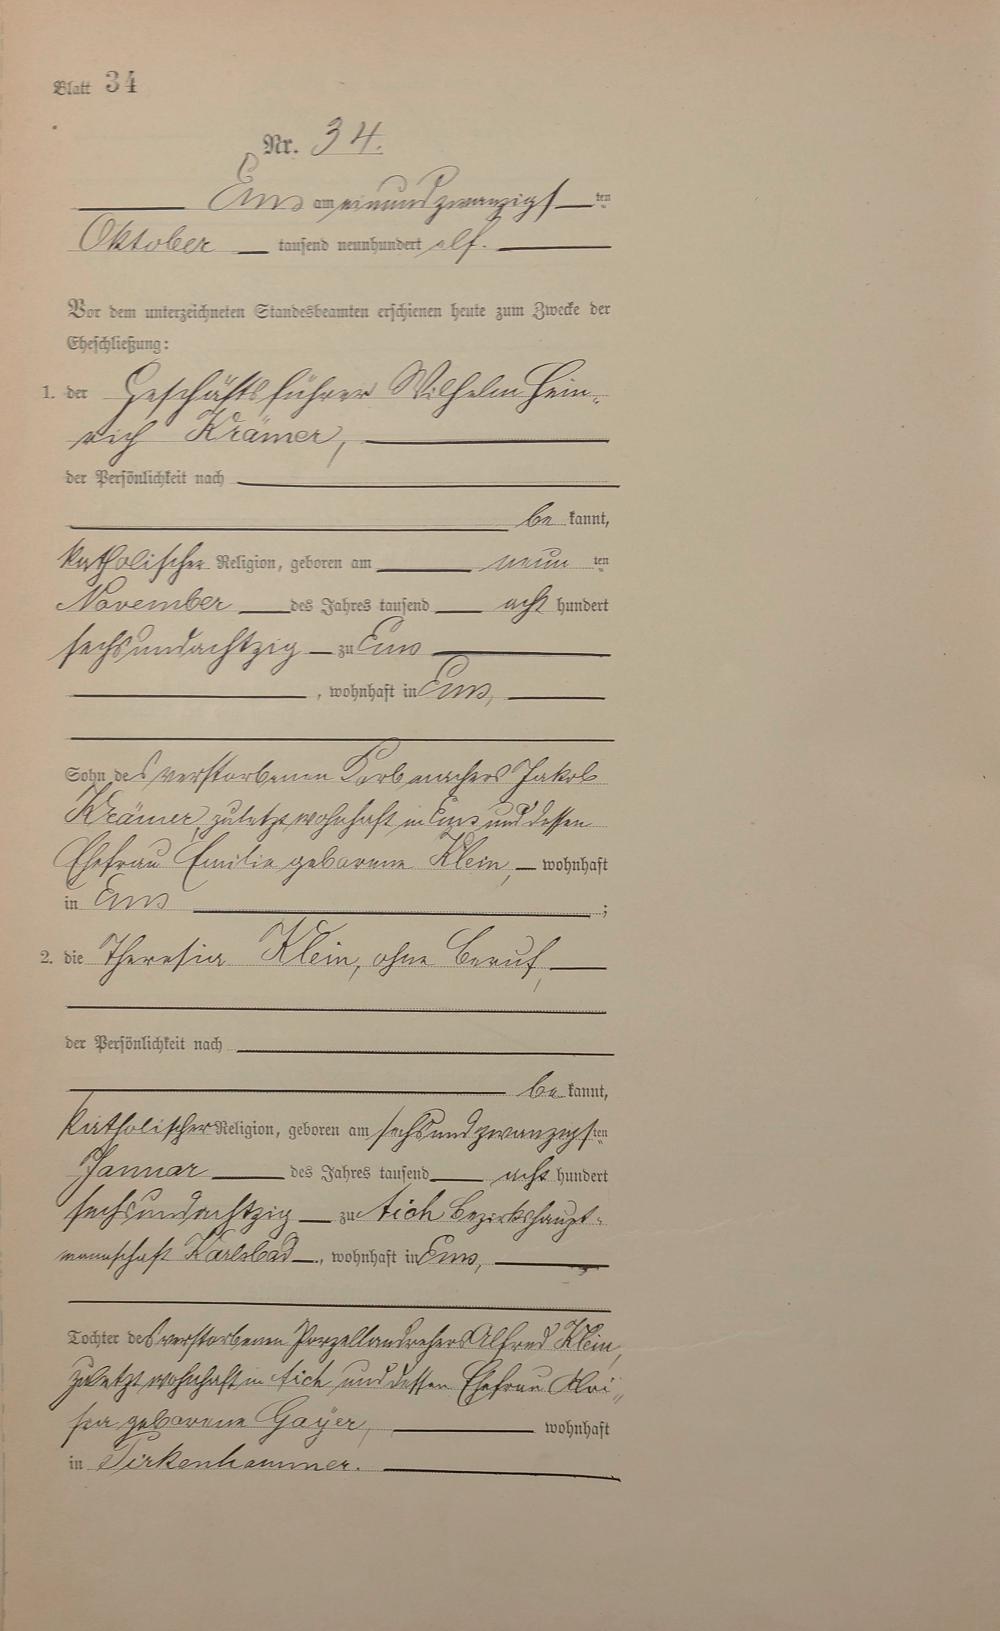 Blatt 34
Nr. 34.
Ems am einundzwanzigsten
Oktober tausend neunhundert elf.
Vor dem unterzeichneten Standesbeamten erschienen heute zum Zwecke der
Eheschließung:
1. der Geschäftsführer Wilhelm Hein-
rich Krämer,
der Persönlichkeit nach
be kannt,
katholischer Religion, geboren am neun ten
November des Jahres tausend acht hundert
sechsundachtzig zu Ems
, wohnhaft in Ems,
Sohn des verstorbenen Korbmachers Jakob
Krämer, zuletzt wohnhaft in Ems und dessen
Ehefrau Emilie geborene Klein, wohnhaft
in Ems ;
2. die Theresia Klein, ohne Beruf,
der Persönlichkeit nach
be kannt,
katholischer Religion, geboren am sechsundzwanzigsten
Januar des Jahres tausend acht hundert
sechsundachtzig zu Aich Bezirkshaupt-
mannschaft Karlsbad, wohnhaft in Ems,
Tochter des verstorbenen Porzellandrehers Alfred Klein,
zuletzt wohnhaft in Aich und dessen Ehefrau Aloi-
sia geborene Gayer, wohnhaft
in Pirkenhammer.